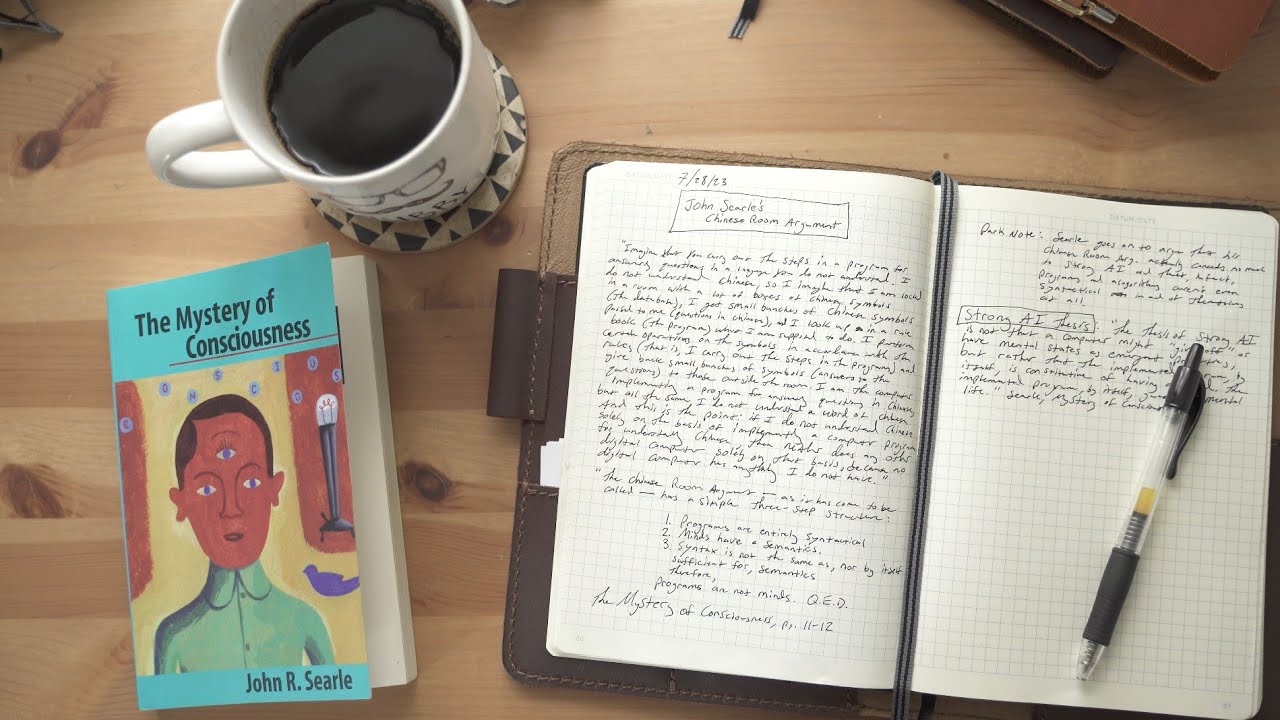 The Mystery of
Consciousness
CONSCIOUS
John R. Searle
DATUM/DATE
7/28/23
John Searle's
Chinese Room Argument
"Imagine that you carry out the steps in a program for
answering questions in a language you do not understand. I
do not understand Chinese, so I imagine that I am locked
in a room with a lot of boxes of Chinese symbols
(the database), I get small bunches of Chinese symbols
passed to me (questions in Chinese), and I look up in a rule
book (the program) what I am supposed to do. I perform
certain operations on the symbols in accordance with the
rules (that is, I carry out the steps in the program) and
give back small bunches of symbols (answers to the
questions) to those outside the room. I am the computer
implementing a program for answering questions in Chinese,
but all the same I do not understand a word of Chinese.
And this is the point: if I do not understand Chinese
solely on the basis of implementing a computer program
for understanding Chinese, then neither does any other
digital computer solely on that basis, because no
digital computer has anything I do not have."
"The Chinese Room Argument — as it has come to be
called — has a simple three-step structure:
1. Programs are entirely syntactical
2. Minds have a semantics.
3. Syntax is not the same as, nor by itself
sufficient for, semantics
therefore,
Programs are not minds. Q.E.D.
The Mystery of Consciousness, pg. 11-12
60
DATUM/DATE
Note: Searle goes on to argue that his
Chinese Room Arg. actually concedes too much
to Strong AI and that, in fact,
programs and algorithms aren't even
syntactical in and of themselves
at all.
Strong AI Thesis: "The thesis of Strong AI
is not that a computer might "give off" as
have mental states as emergent properties,
but rather that the implemented program, by
itself, is constitutive of having a mind. The
implemented program, by itself, mental
life." Searle, Mystery of Consciousness
61